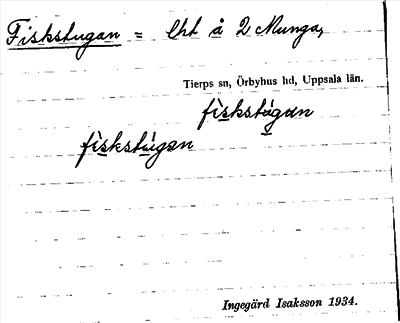 Fiskstugan = lht å 2 Munga,
Tierps sn, Örbyhus hd, Uppsala län.
fìskstùgɑn
fìskstùgən
Ingegärd Isaksson 1934.